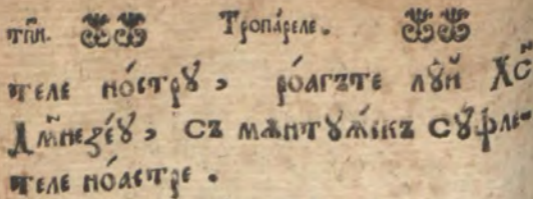 тпн. Тропа́реле.
теле но́струꙋ, ро́агъте луй Хс҃
Дм҃незе́ꙋ, съ мѫнтꙋѧ́скъ сꙋ́фле-
теле но́астре.